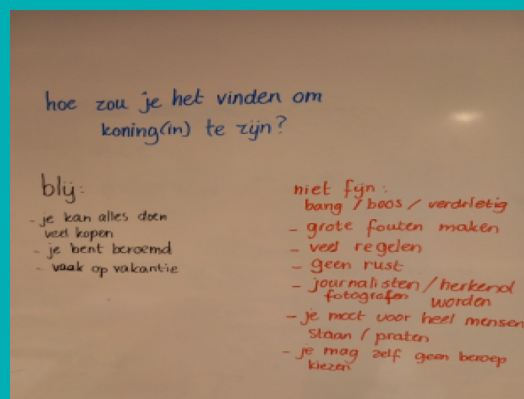 hoe zou je het vinden om
koning(in) te zijn?
blij:
- je kan alles doen
veel kopen
- je bent beroemd
- vaak op vakantie
niet fijn:
bang / boos / verdrietig
- grote fouten maken
- veel regelen
- geen rust
- journalisten / herkend
fotografen worden
- je moet voor heel mensen
staan / praten
- je mag zelf geen beroep
kiezen